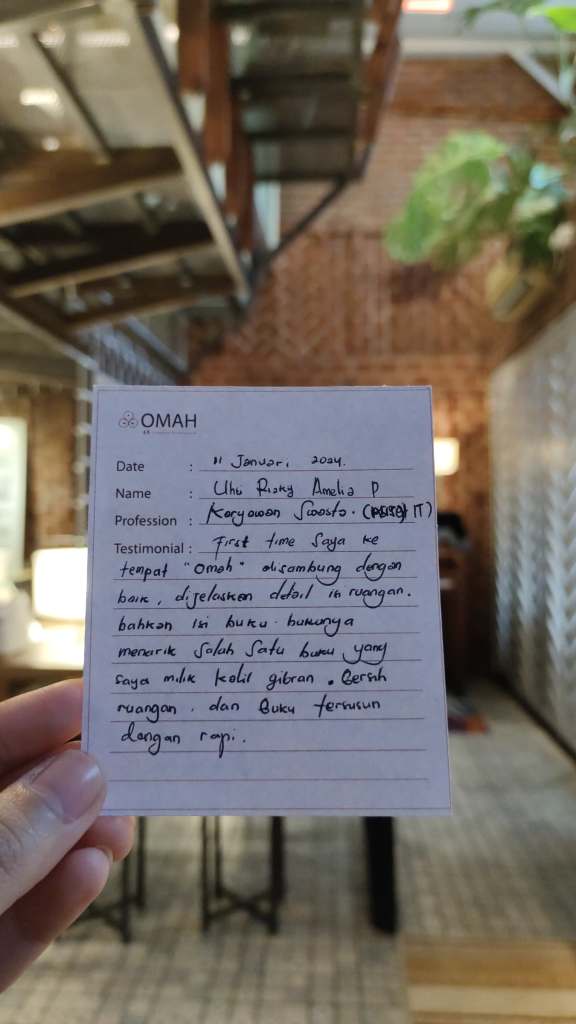 OMAH
Date : 11 Januari 2024.
Name : Uhti Rizky Amelia P
Profession : Karyawan Swasta. ( IT)
Testimonial : First time saya ke
tempat "omah" disambung dengan
baik, dijelaskan detail isi ruangan.
bahkan isi buku-bukunya
menarik salah satu buku yang
saya milik Kahlil gibran. Bersih
ruangan, dan Buku tersusun
dengan rapi.